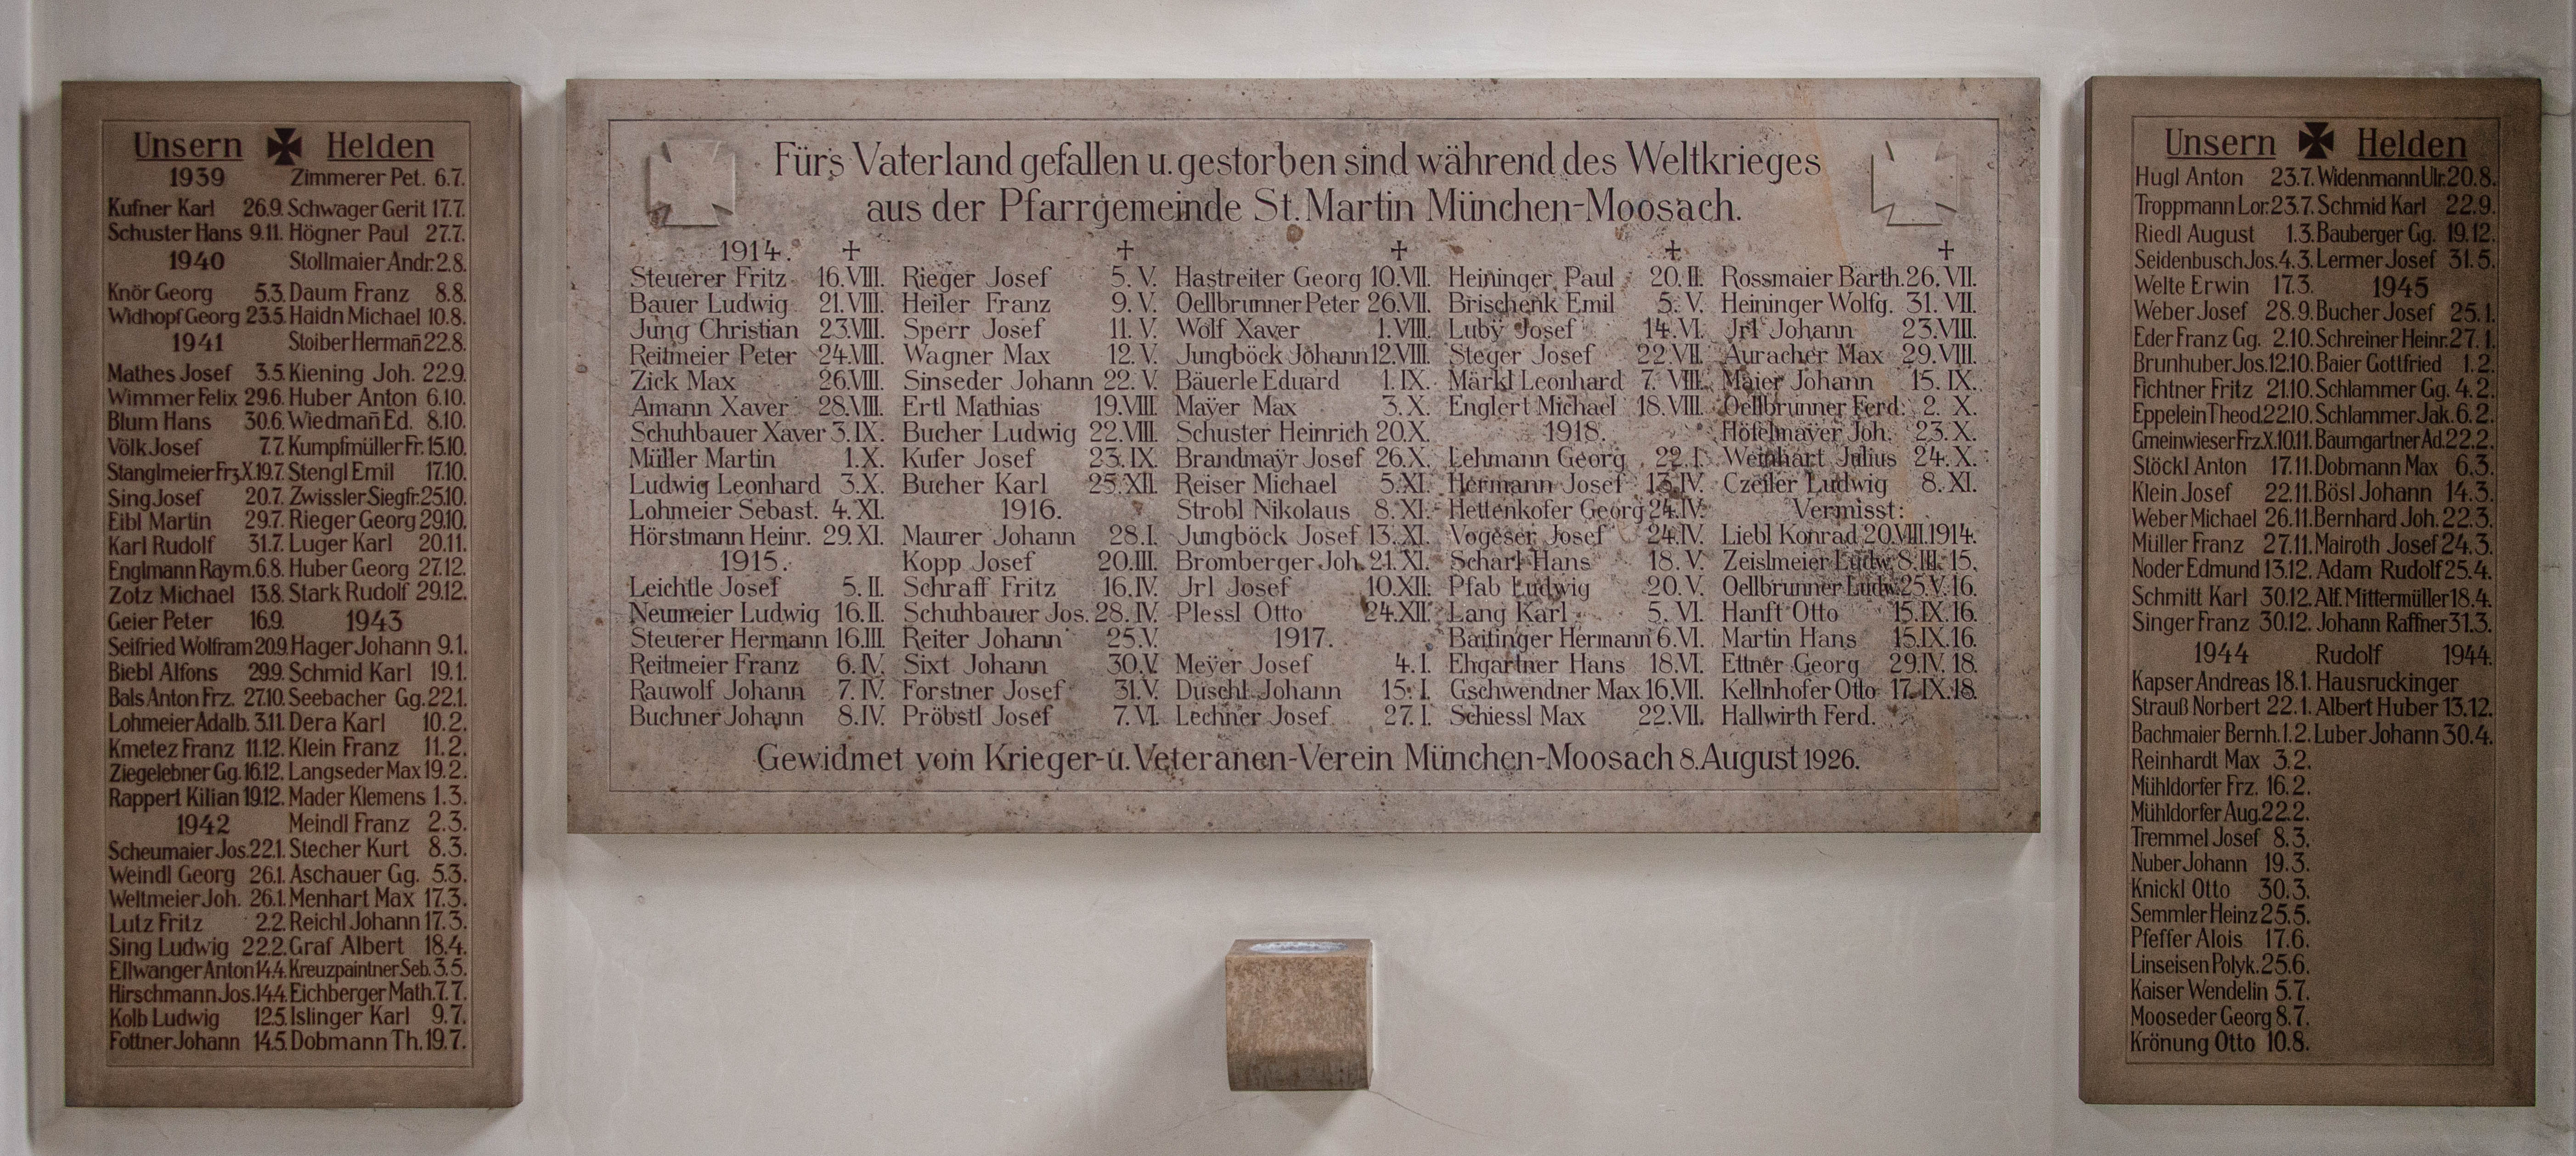 Unsern Helden
1939
Kufner Karl 26.9.
Schuster Hans 9.11.
1940
Knör Georg 5.3.
Widhopf Georg 23.5.
1941
Mathes Josef 3.5.
Wimmer Felix 29.6.
Blum Hans 30.6.
Völk Josef 7.7.
Stanglmeier Frz.X. 19.7.
Sing Josef 20.7.
Eibl Martin 29.7.
Karl Rudolf 31.7.
Englmann Raym. 6.8.
Zotz Michael 13.8.
Geier Peter 16.9.
Seifried Wolfram 20.9.
Biebl Alfons 29.9.
Bals Anton Frz. 27.10.
Lohmeier Adalb. 3.11.
Kmetez Franz 11.12.
Ziegelebner Gg. 16.12.
Rappert Kilian 19.12.
1942
Scheumaier Jos. 22.1.
Weindl Georg 26.1.
Weltmeier Joh. 26.1.
Lutz Fritz 2.2.
Sing Ludwig 22.2.
Ellwanger Anton 14.4.
Hirschmann Jos. 14.4.
Kolb Ludwig 12.5.
Fottner Johann 14.5.
Zimmerer Pet. 6.7.
Schwager Gerit 17.7.
Högner Paul 27.7.
Stollmaier Andr. 2.8.
Daum Franz 8.8.
Haidn Michael 10.8.
Stoiber Herman̄ 22.8.
Kiening Joh. 22.9.
Huber Anton 6.10.
Wiedman̄ Ed. 8.10.
Kumpfmüller Fr. 15.10.
Stengl Emil 17.10.
Zwissler Siegfr. 25.10.
Rieger Georg 29.10.
Luger Karl 20.11.
Huber Georg 27.12.
Stark Rudolf 29.12.
1943
Hager Johann 9.1.
Schmid Karl 19.1.
Seebacher Gg. 22.1.
Dera Karl 10.2.
Klein Franz 11.2.
Langseder Max 19.2.
Mader Klemens 1.3.
Meindl Franz 2.3.
Stecher Kurt 8.3.
Aschauer Gg. 5.3.
Menhart Max 17.3.
Reichl Johann 17.3.
Graf Albert 18.4.
Kreuzpaintner Seb. 3.5.
Eichberger Math. 7.7.
Islinger Karl 9.7.
Dobmann Th. 19.7.
Fürs Vaterland gefallen u. gestorben sind während des Weltkrieges
aus der Pfarrgemeinde St. Martin München-Moosach.
1914. +
Steuerer Fritz 16.VIII.
Bauer Ludwig 21.VIII.
Jung Christian 23.VIII.
Reitmeier Peter 24.VIII.
Zick Max 26.VIII.
Amann Xaver 28.VIII.
Schuhbauer Xaver 3.IX.
Müller Martin 1.X.
Ludwig Leonhard 3.X.
Lohmeier Sebast. 4.XI.
Hörstmann Heinr. 29.XI.
1915.
Leichtle Josef 5.II.
Neumeier Ludwig 16.II.
Steuerer Hermann 16.III.
Reitmeier Franz 6.IV.
Rauwolf Johann 7.IV.
Buchner Johann 8.IV.
+
Rieger Josef 5.V.
Heiler Franz 9.V.
Sperr Josef 11.V.
Wagner Max 12.V.
Sinseder Johann 22.V.
Ertl Mathias 19.VIII.
Bucher Ludwig 22.VIII.
Kufer Josef 23.IX.
Bucher Karl 25.XII.
1916.
Maurer Johann 28.I.
Kopp Josef 20.III.
Schraff Fritz 16.IV.
Schuhbauer Jos. 28.IV.
Reiter Johann 25.V.
Sixt Johann 30.V.
Forstner Josef 31.V.
Pröbstl Josef 7.VI.
+
Hastreiter Georg 10.VII.
Oellbrunner Peter 26.VII.
Wolf Xaver 1.VIII.
Jungböck Johann 12.VIII.
Bäuerle Eduard 1.IX.
Mayer Max 3.X.
Schuster Heinrich 20.X.
Brandmaÿr Josef 26.X.
Reiser Michael 5.XI.
Strobl Nikolaus 8.XI.
Jungböck Josef 13.XI.
Bromberger Joh. 21.XI.
Jrl Josef 10.XII.
Plessl Otto 24.XII.
1917.
Meÿer Josef 4.I.
Duschl Johann 15.I.
Lechner Josef 27.I.
+
Heininger Paul 20.II.
Brischenk Emil 5.V.
Luby Josef 14.VI.
Steger Josef 22.VII.
Märkl Leonhard 7.VIII.
Englert Michael 18.VIII.
1918.
Lehmann Georg 22.I.
Hermann Josef 13.IV.
Hettenkofer Georg 24.IV.
Vogeser Josef 24.IV.
Scharl Hans 18.V.
Pfab Ludwig 20.V.
Lang Karl 5.VI.
Baitinger Hermann 6.VI.
Ehgartner Hans 18.VI.
Gschwendner Max 16.VII.
Schiessl Max 22.VII.
+
Rossmaier Barth. 26.VII.
Heininger Wolfg. 31.VII.
Jrl Johann 23.VIII.
Auracher Max 29.VIII.
Maier Johann 15.IX.
Oellbrunner Ferd. 2.X.
Höfelmayer Joh. 23.X.
Weinhart Julius 24.X.
Czeiler Ludwig 8.XI.
Vermisst:
Liebl Konrad 20.VIII.1914.
Zeislmeier Ludw. 8.III.15.
Oellbrunner Ludw. 25.V.16.
Hanft Otto 15.IX.16.
Martin Hans 15.IX.16.
Ettner Georg 29.IV.18.
Kellnhofer Otto 17.IX.18.
Hallwirth Ferd.
Gewidmet vom Krieger- u. Veteranen-Verein München-Moosach 8. August 1926.
Unsern Helden
Hugl Anton 23.7.
Troppmann Lor. 23.7.
Riedl August 1.3.
Seidenbusch Jos. 4.3.
Welte Erwin 17.3.
Weber Josef 28.9.
Eder Franz Gg. 2.10.
Brunhuber Jos. 12.10.
Fichtner Fritz 21.10.
Eppelein Theod. 22.10.
Gmeinwieser Frz.X. 10.11.
Stöckl Anton 17.11.
Klein Josef 22.11.
Weber Michael 26.11.
Müller Franz 27.11.
Noder Edmund 13.12.
Schmitt Karl 30.12.
Singer Franz 30.12.
1944
Kapser Andreas 18.1.
Strauß Norbert 22.1.
Bachmaier Bernh. 1.2.
Reinhardt Max 3.2.
Mühldorfer Frz. 16.2.
Mühldorfer Aug. 22.2.
Tremmel Josef 8.3.
Nuber Johann 19.3.
Knickl Otto 30.3.
Semmler Heinz 25.5.
Pfeffer Alois 17.6.
Linseisen Polyk. 25.6.
Kaiser Wendelin 5.7.
Mooseder Georg 8.7.
Krönung Otto 10.8.
Widenmann Ulr. 20.8.
Schmid Karl 22.9.
Bauberger Gg. 19.12.
Lermer Josef 31.5.
1945
Bucher Josef 25.1.
Schreiner Heinr. 27.1.
Baier Gottfried 1.2.
Schlammer Gg. 4.2.
Schlammer Jak. 6.2.
Baumgartner Ad. 22.2.
Dobmann Max 6.3.
Bösl Johann 14.3.
Bernhard Joh. 22.3.
Mairoth Josef 24.3.
Adam Rudolf 25.4.
Alf. Mittermüller 18.4.
Johann Raffner 31.3.
Rudolf 1944.
Hausruckinger
Albert Huber 13.12.
Luber Johann 30.4.